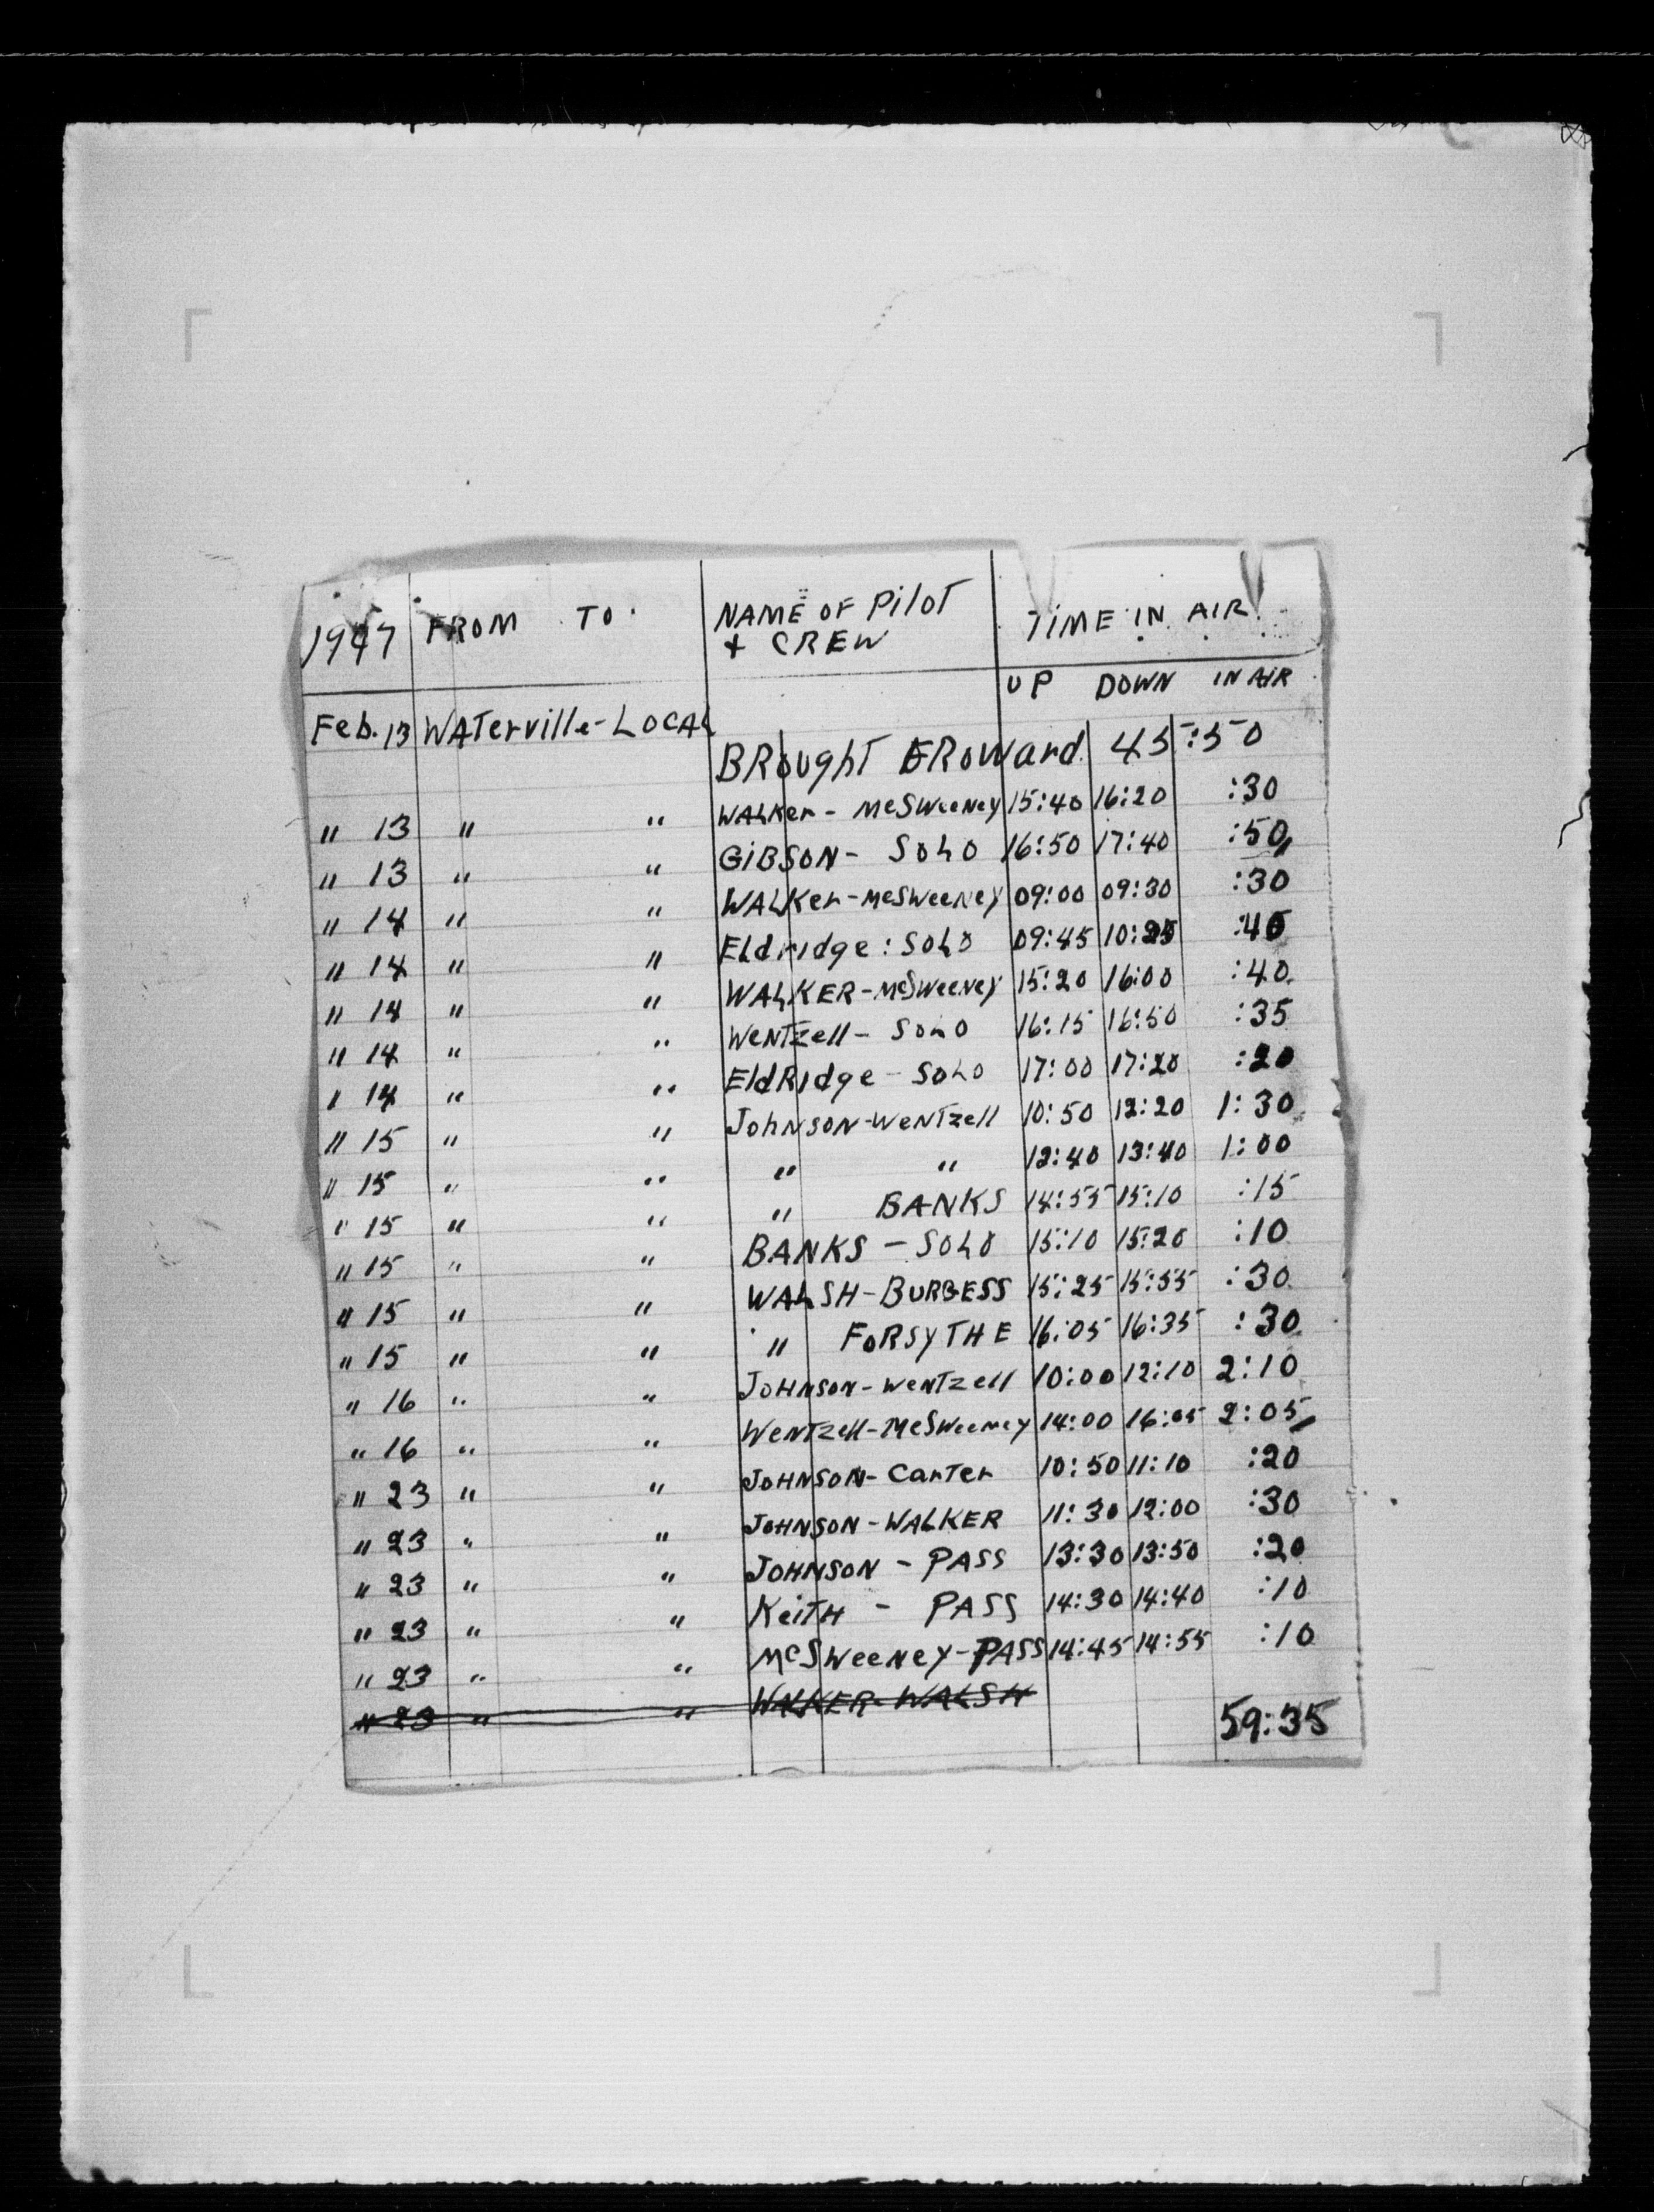 1947 FROM TO NAME OF PILOT TIME IN AIR
+ CREW
UP DOWN IN AIR
Feb. 13 WATerville - LOCAL
BROught FROWard 45:50
" 13 " " WALKer - McSWeeNey 15:40 16:20 :30
" 13 " " GiBSON - SOLO 16:50 17:40 :50
" 14 " " WALKer - McSWeeNey 09:00 09:30 :30
" 14 " " Eldridge : SOLO 09:45 10:25 :40
" 14 " " WALKER - McSWeeNey 15:20 16:00 :40
" 14 " " WeNTzell - SOLO 16:15 16:50 :35
" 14 " " EldRidge - SOLO 17:00 17:20 :20
" 15 " " JohNSON - WeNTzell 10:50 12:20 1:30
" 15 " " " " 12:40 13:40 1:00
" 15 " " " BANKS 14:55 15:10 :15
" 15 " " BANKS - SOLO 15:10 15:20 :10
" 15 " " WALSH - BURGESS 15:25 15:55 :30
" 15 " " " FORSYTHE 16:05 16:35 :30
" 16 " " JOHNSON - WeNTzell 10:00 12:10 2:10
" 16 " " WeNTzell - McSWeeNey 14:00 16:05 2:05
" 23 " " JOHNSON - CarTer 10:50 11:10 :20
" 23 " " JOHNSON - WALKER 11:30 12:00 :30
" 23 " " JOHNSON - PASS 13:30 13:50 :20
" 23 " " KeiTH - PASS 14:30 14:40 :10
" 23 " " McSWeeNey - PASS 14:45 14:55 :10
" 23 " " WALKER - WALSH
59:35